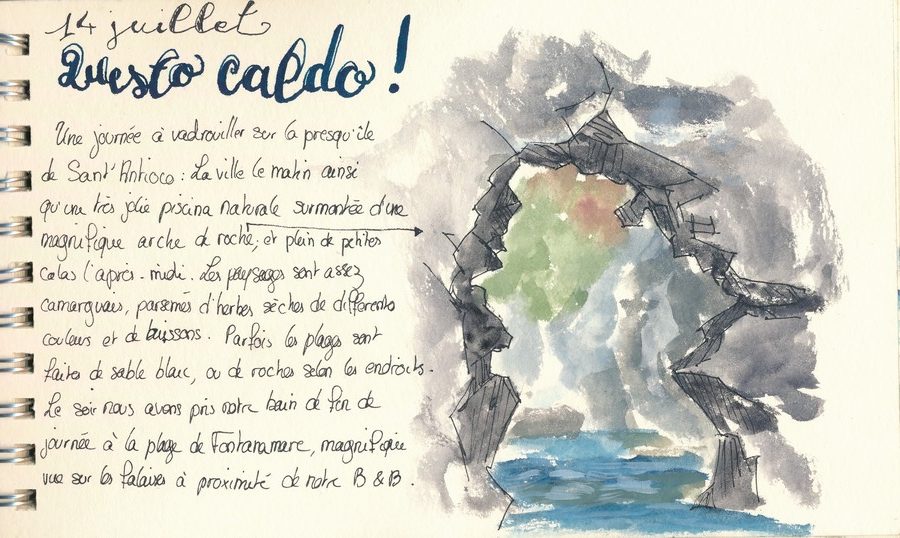 14 juillet
Questo caldo !
Une journée à vadrouiller sur la presqu'île
de Sant'Antioco : La ville le matin ainsi
qu'une très jolie piscina naturale surmontée d'une
magnifique arche de roche, et plein de petites
calas l'après-midi. Les paysages sont assez
camarguais, parsemés d'herbes sèches de différentes
couleurs et de buissons. Parfois les plages sont
faites de sable blanc, ou de roches selon les endroits.
Le soir nous avons pris notre bain de fin de
journée à la plage de Fontanamare, magnifique
vue sur les falaises à proximité de notre B & B.